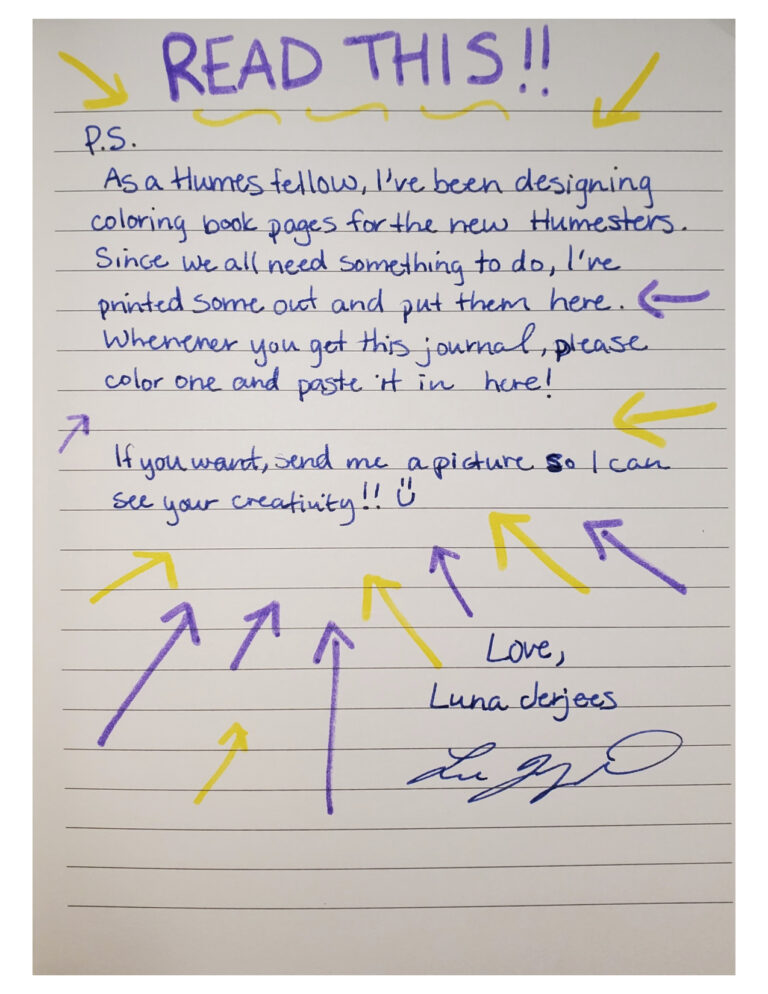 READ THIS!!
P.S.
As a Humes fellow, I've been designing
coloring book pages for the new Humesters.
Since we all need something to do, I've
printed some out and put them here.
Whenever you get this journal, please
color one and paste it in here!
If you want, send me a picture so I can
see your creativity!!
Love,
Luna